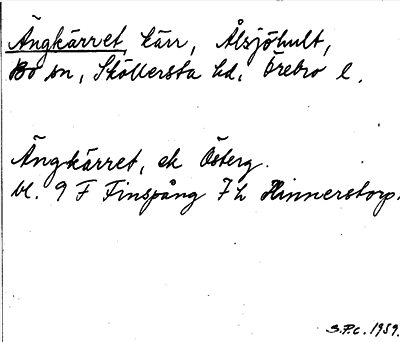 Ängkärret, kärr, Ålsjöhult,
Bo sn, Sköllersta hd, Örebro l.
Ängkärret, ek Österg.
bl. 9 F Finspång 7 h Hinnerstorp.
S.P.C. 1959.